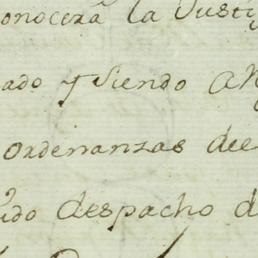 onocerá la Justi
ado y siendo
ordenanzas de
ido despacho d